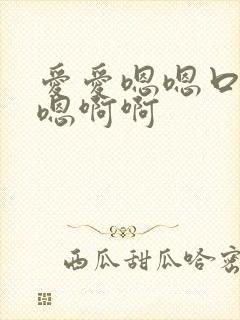 爱爱嗯嗯口
嗯啊啊
西瓜甜瓜哈密